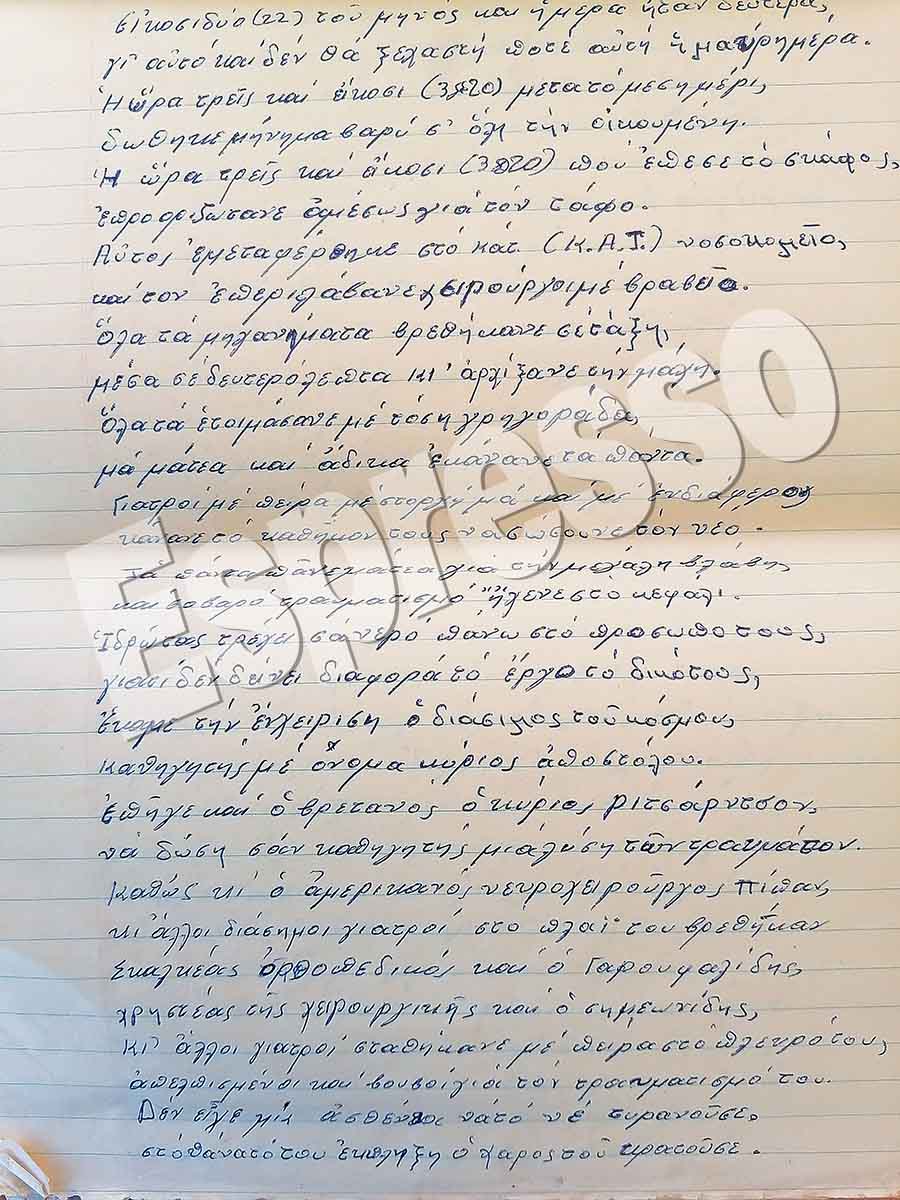 εἰκοσιδύο (22) τοῦ μηνὸς καὶ ἡμέρα ἤταν δευτέρα,
γι' αὐτὸ καὶ δὲν θὰ ξεχαστῆ ποτὲ αὐτὴ ἡ μαύρη μέρα.
Ἡ ὥρα τρεῖς καὶ εἴκοσι (3 20) μετὰ τὸ μεσημέρι,
δωθηκε μήνημα βαρύ σ' ὅλη τὴν οἰκουμένη.
Ἡ ὥρα τρεῖς καὶ εἴκοσι (3 20) ποὺ ἔπεσε τὸ σκάφος,
ἐπροοριζώτανε ἀμέσως γιὰ τὸν τάφο.
Αὐτὸς ἐμεταφέρθηκε στὸ κάτ (Κ.Α.Τ.) νοσοκομεῖο,
καὶ τον ἐπεριλάβανε χειρούργοι μὲ βραβεῖο.
Ὅλα τὰ μηχανήματα βρεθήκανε σὲ τάξη,
μέσα σὲ δευτερόλεπτα κι' ἀρχίξανε τὴν μάχη.
Ὅλα τὰ ἑτοιμάσανε μὲ τόση γρηγοράδα,
μὰ μάτεα καὶ ἄδικα ἐκάνανε τὰ πάντα.
Γιατροὶ μὲ πείρα μὲ στοργὴ μὰ καὶ μὲ ἐνδιαφέρον
κάνανε τὸ καθῆκον τους νὰ σώσουνε τὸν νέο.
Τὰ πάντα μάτεα γιὰ τὴν μεγάλη βλάβη,
καὶ σοβαρὸ τραυματισμὸ στὸ κεφάλι.
Ἱδρώτας τρέχει σὰ νερὸ πάνω στὸ πρόσωπό τους,
γιατὶ δὲν δείνει διαφορὰ τὸ ἔργο τὸ δικό τους,
Ἔκαμε τὴν ἐνχείριση ὁ διάσιμος τοῦ κόσμου,
καθηγητής μὲ ὄνομα κύριος ἀποστόλου.
Ἐπῆγε καὶ ὁ βρετανὸς ὁ κύριος ριτσάρντσον,
νὰ δώση σὰν καθηγητής μιὰ λύση τῶν τραυμάτον.
Καθὼς κι' ὁ ἀμερικανὸς νευροχειροῦργος πίπαν,
κι' ἄλλοι διάσημοι γιατροὶ στὸ πλαΐ του βρεθῆκαν
Σκαλκέας ὀρθοπεδικὸς καὶ ὁ Γαρουφαλίδης,
χρηστέας τῆς χειρουργικῆς καὶ ὁ σημεωνίδης,
Κι' ἄλλοι γιατροὶ σταθήκανε μὲ πείρα στὸ πλευρό τους,
ἀπελπισμένοι καὶ βουβοὶ γιὰ τὸν τραυματισμό του.
Δὲν εἶχε μιὰ ἀσθένεια νὰ τὸ νὲ τυρανοῦσε,
στὸ θάνατό του ἐκπληξη ὁ χάρος τοῦ κρατοῦσε.
Espresso